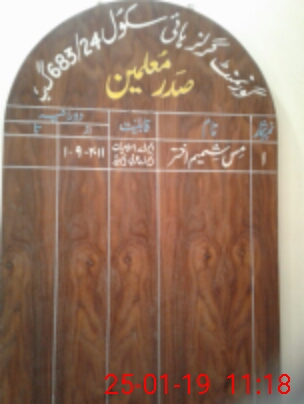 گورنمنٹ گرلز ہائی سکول 683/24 گ ب
صدر معلمین
نمبر شمار نام قابلیت دورانیہ
از تا
1 مس شمیم اختر ایم اے اسلامیات 1-9-2011
25-01-19 11:18